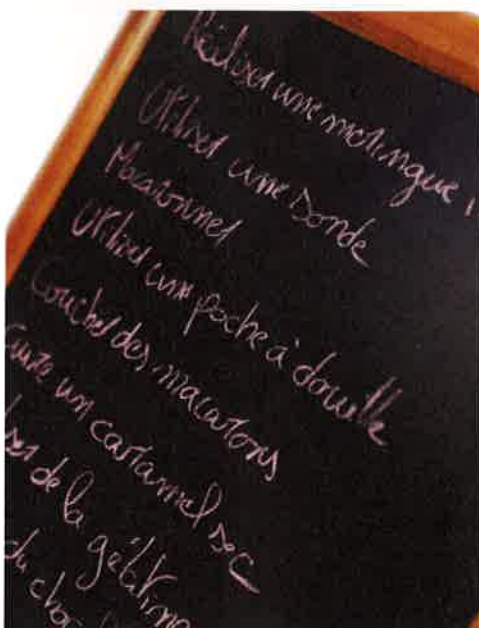 Réaliser une meringue
Utiliser une sonde
Macaronner
Utiliser une poche à douille
Coucher des macarons
Cuire un caramel sec
de la gélatine
du